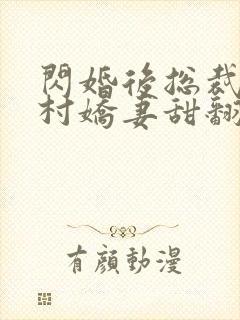 閃婚後總裁
村嬌妻甜翻
有顏動漫